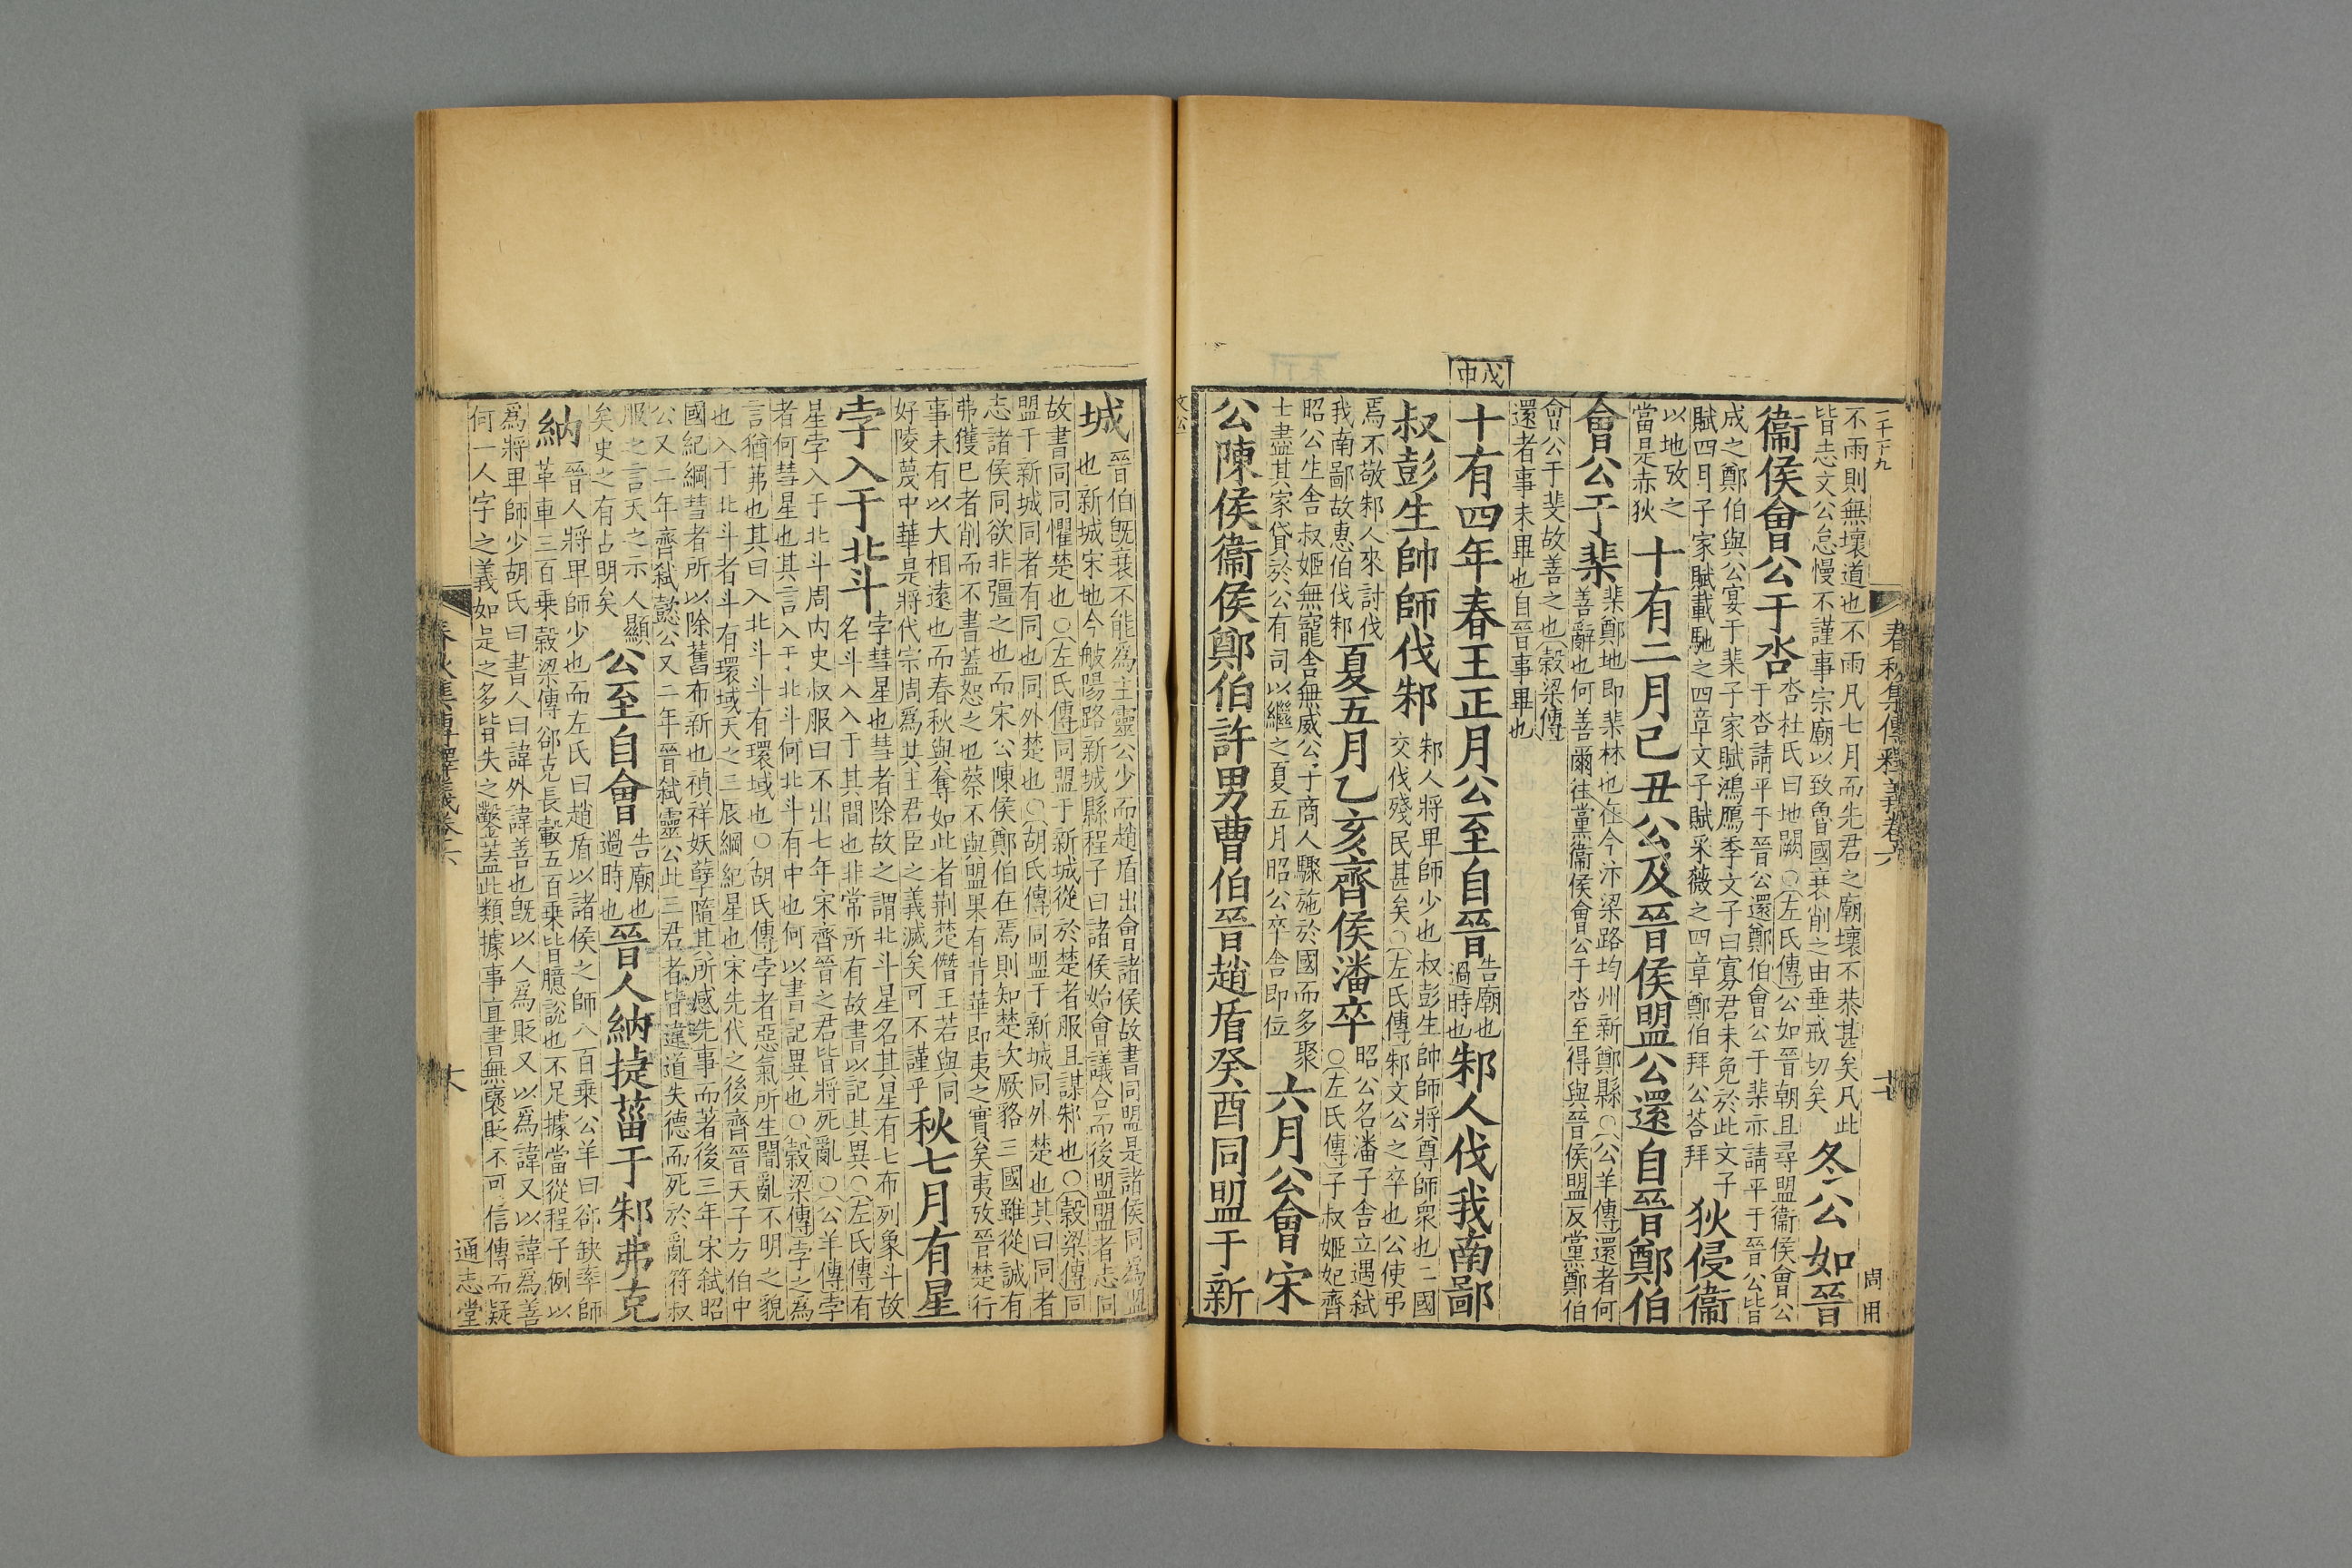 春秋集傳釋義卷六
十七
周用
不雨則無壞道也不雨凡七月而先君之廟壞不恭甚矣凡此
皆志文公怠慢不謹事宗廟以致魯國衰削之由垂戒切矣
冬公如晉
衞侯會公于沓
沓杜氏曰地闕○左氏傳公如晉朝且尋盟衞侯會公
于沓請平于晉公還鄭伯會公于棐亦請平于晉公皆
成之鄭伯與公宴于棐子家賦鴻鴈季文子曰寡君未免於此文子
賦四月子家賦載馳之四章文子賦采薇之四章鄭伯拜公荅拜
狄侵衞
以地攷之
當是赤狄
十有二月己丑公及晉侯盟公還自晉鄭伯
會公于棐
棐鄭地即棐林也在今汴梁路均州新鄭縣○公羊傳還者何
善辭也何善爾往黨衞侯會公于沓至得與晉侯盟反黨鄭伯
會公于斐故善之也穀梁傳
還者事未畢也自晉事畢也
戊申
十有四年春王正月公至自晉
告廟也
過時也
邾人伐我南鄙
叔彭生帥師伐邾
邾人將卑師少也叔彭生帥師將尊師衆也二國
交伐殘民甚矣○左氏傳邾文公之卒也公使弔
焉不敬邾人來討伐
我南鄙故惠伯伐邾
夏五月乙亥齊侯潘卒
昭公名潘子舍立遇弒
○左氏傳子叔姬妃齊
昭公生舍叔姬無寵舍無威公子商人驟施於國而多聚
士盡其家貸於公有司以繼之夏五月昭公卒舍即位
六月公會宋
公陳侯衞侯鄭伯許男曹伯晉趙盾癸酉同盟于新
文公
城
晉伯旣衰不能爲主靈公少而趙盾出會諸侯故書同盟是諸侯同爲盟
也新城宋地今陽路新城縣程子曰諸侯始會議合而後盟盟者志同
故書同同懼楚也○左氏傳同盟于新城從於楚者服且謀邾也○穀梁傳同
盟于新城同者有同也同外楚也○胡氏傳同盟于新城同外楚也其曰同者
志諸侯同欲非彊之也而宋公陳侯鄭伯在焉則知楚次厥貉三國雖從誠有
弗獲已者削而不書蓋恕之也蔡不與盟果有背華即夷之實矣夷攷晉楚行
事未有以大相遠也而春秋與奪如此者荆楚僭王若與同
好陵蔑中華是將代宗周爲其主君臣之義滅矣可不謹乎
秋七月有星
孛入于北斗
孛彗星也彗者除故之謂北斗星名其星有七布列象斗故
名斗入入于其間也非常所有故書以記其異○左氏傳有
星孛入于北斗周内史叔服曰不出七年宋齊晉之君皆將死亂○公羊傳孛
者何彗星也其言入于北斗何北斗有中也何以書記異也○穀梁傳孛之爲
言猶茀也其曰入北斗斗有環域也○胡氏傳孛者惡氣所生闇亂不明之貌
也入于北斗者斗有環域天之三辰綱紀星也宋先代之後齊晉天子方伯中
國紀綱彗者所以除舊布新也禎祥妖孽隨其所感先事而著後三年宋弒昭
公又二年齊弒懿公又二年晉弒靈公此三君者皆違道失德而死於亂符叔
服之言天之示人顯
矣史之有占明矣
公至自會
告廟也
過時也
晉人納捷菑于邾弗克
納
晉人將卑師少也而左氏曰趙盾以諸侯之師八百乘公羊曰郤缺率師
革車三百乘穀梁傳郤克長轂五百乘皆臆說也不足據當從程子例以
爲將卑師少胡氏曰書人曰諱外諱善也旣以人爲貶又以爲諱又以諱爲善
何一人字之義如是之多皆失之鑿蓋此類據事直書無襃貶不可信傳而疑
春秋集傳釋義卷六
十八
通志堂